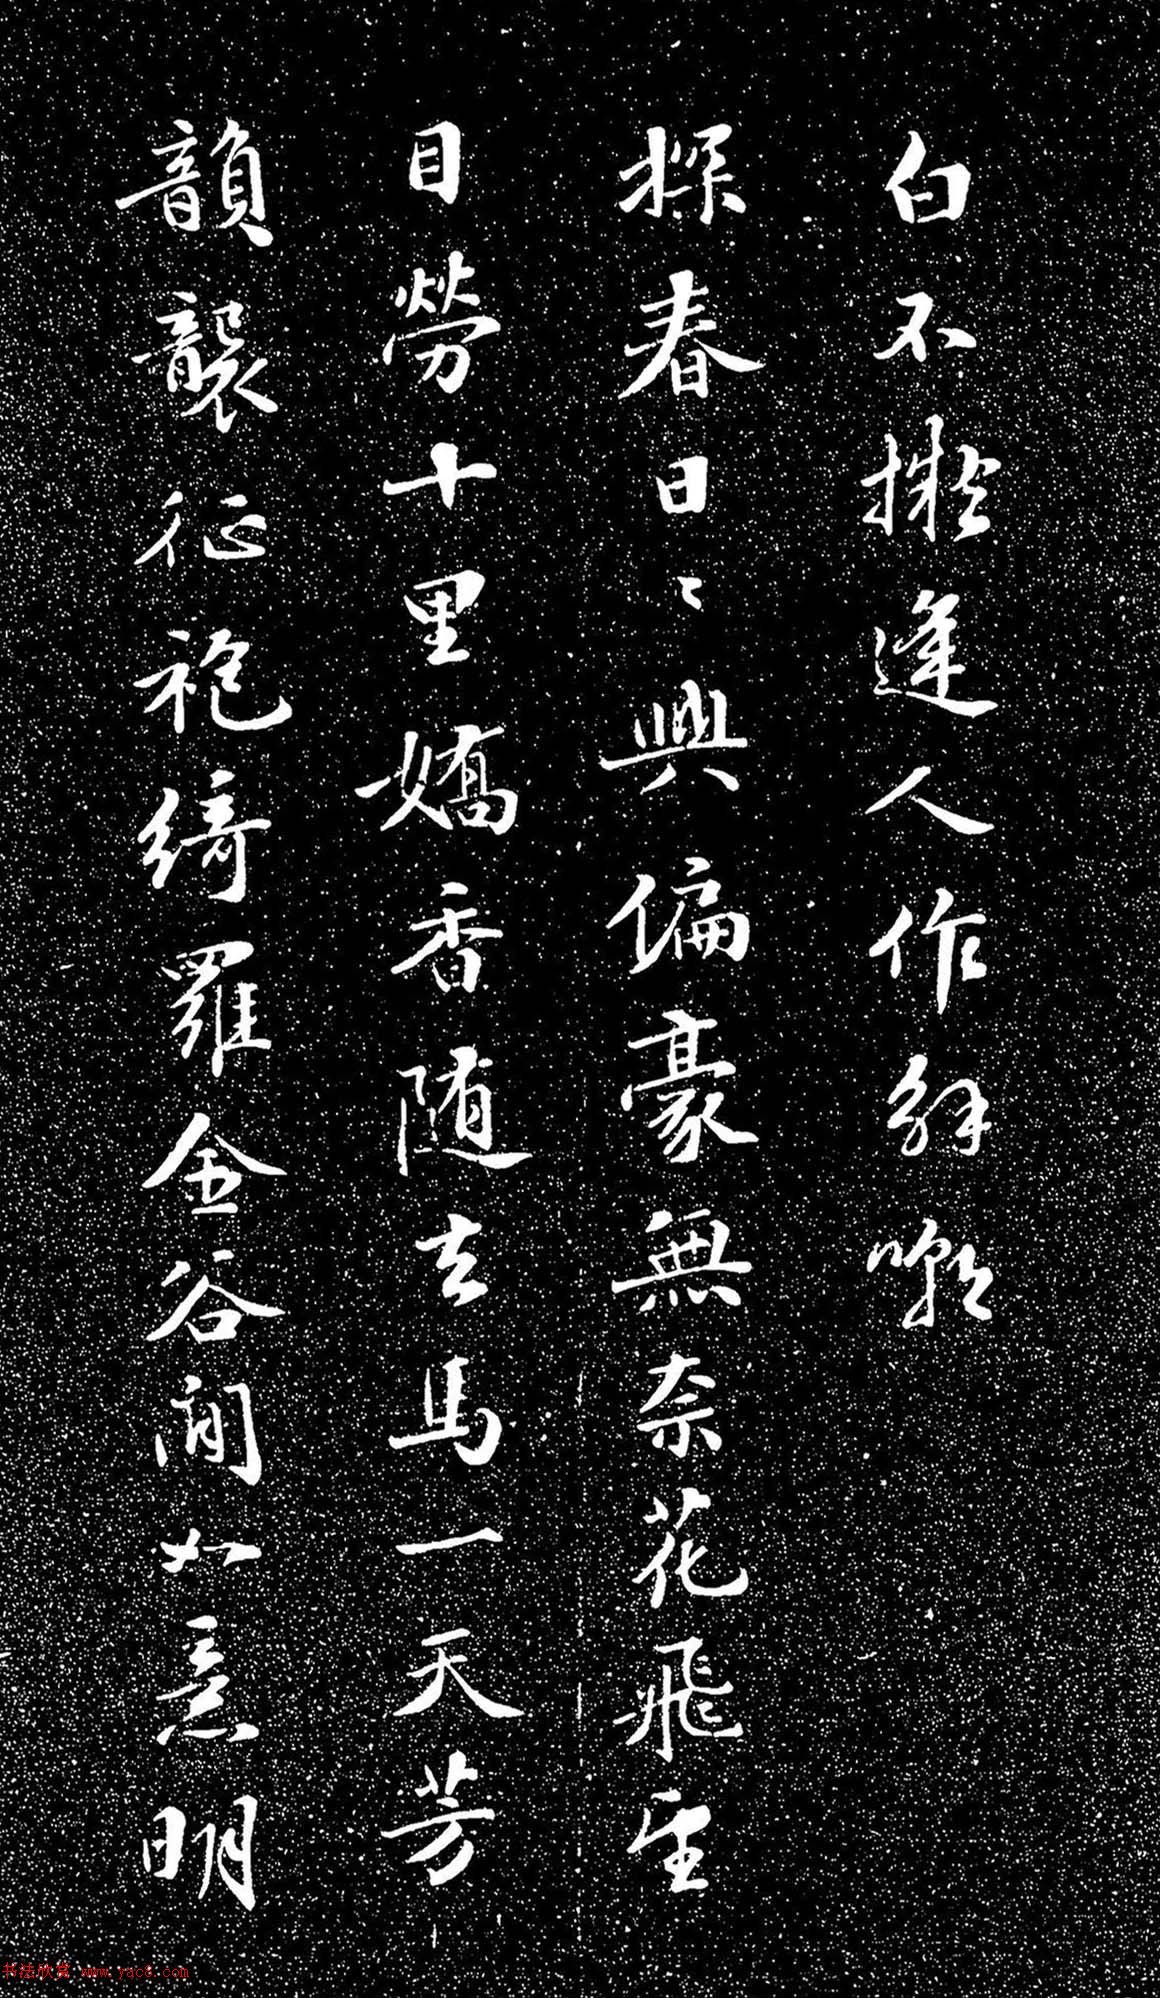 白不擬逢人作解嘲
探春日〻興偏豪無奈花飛望
目勞十里嬌香随去馬一天芳
韻襲征袍綺羅金谷閒如意明
书法欣赏 www.yac8.com